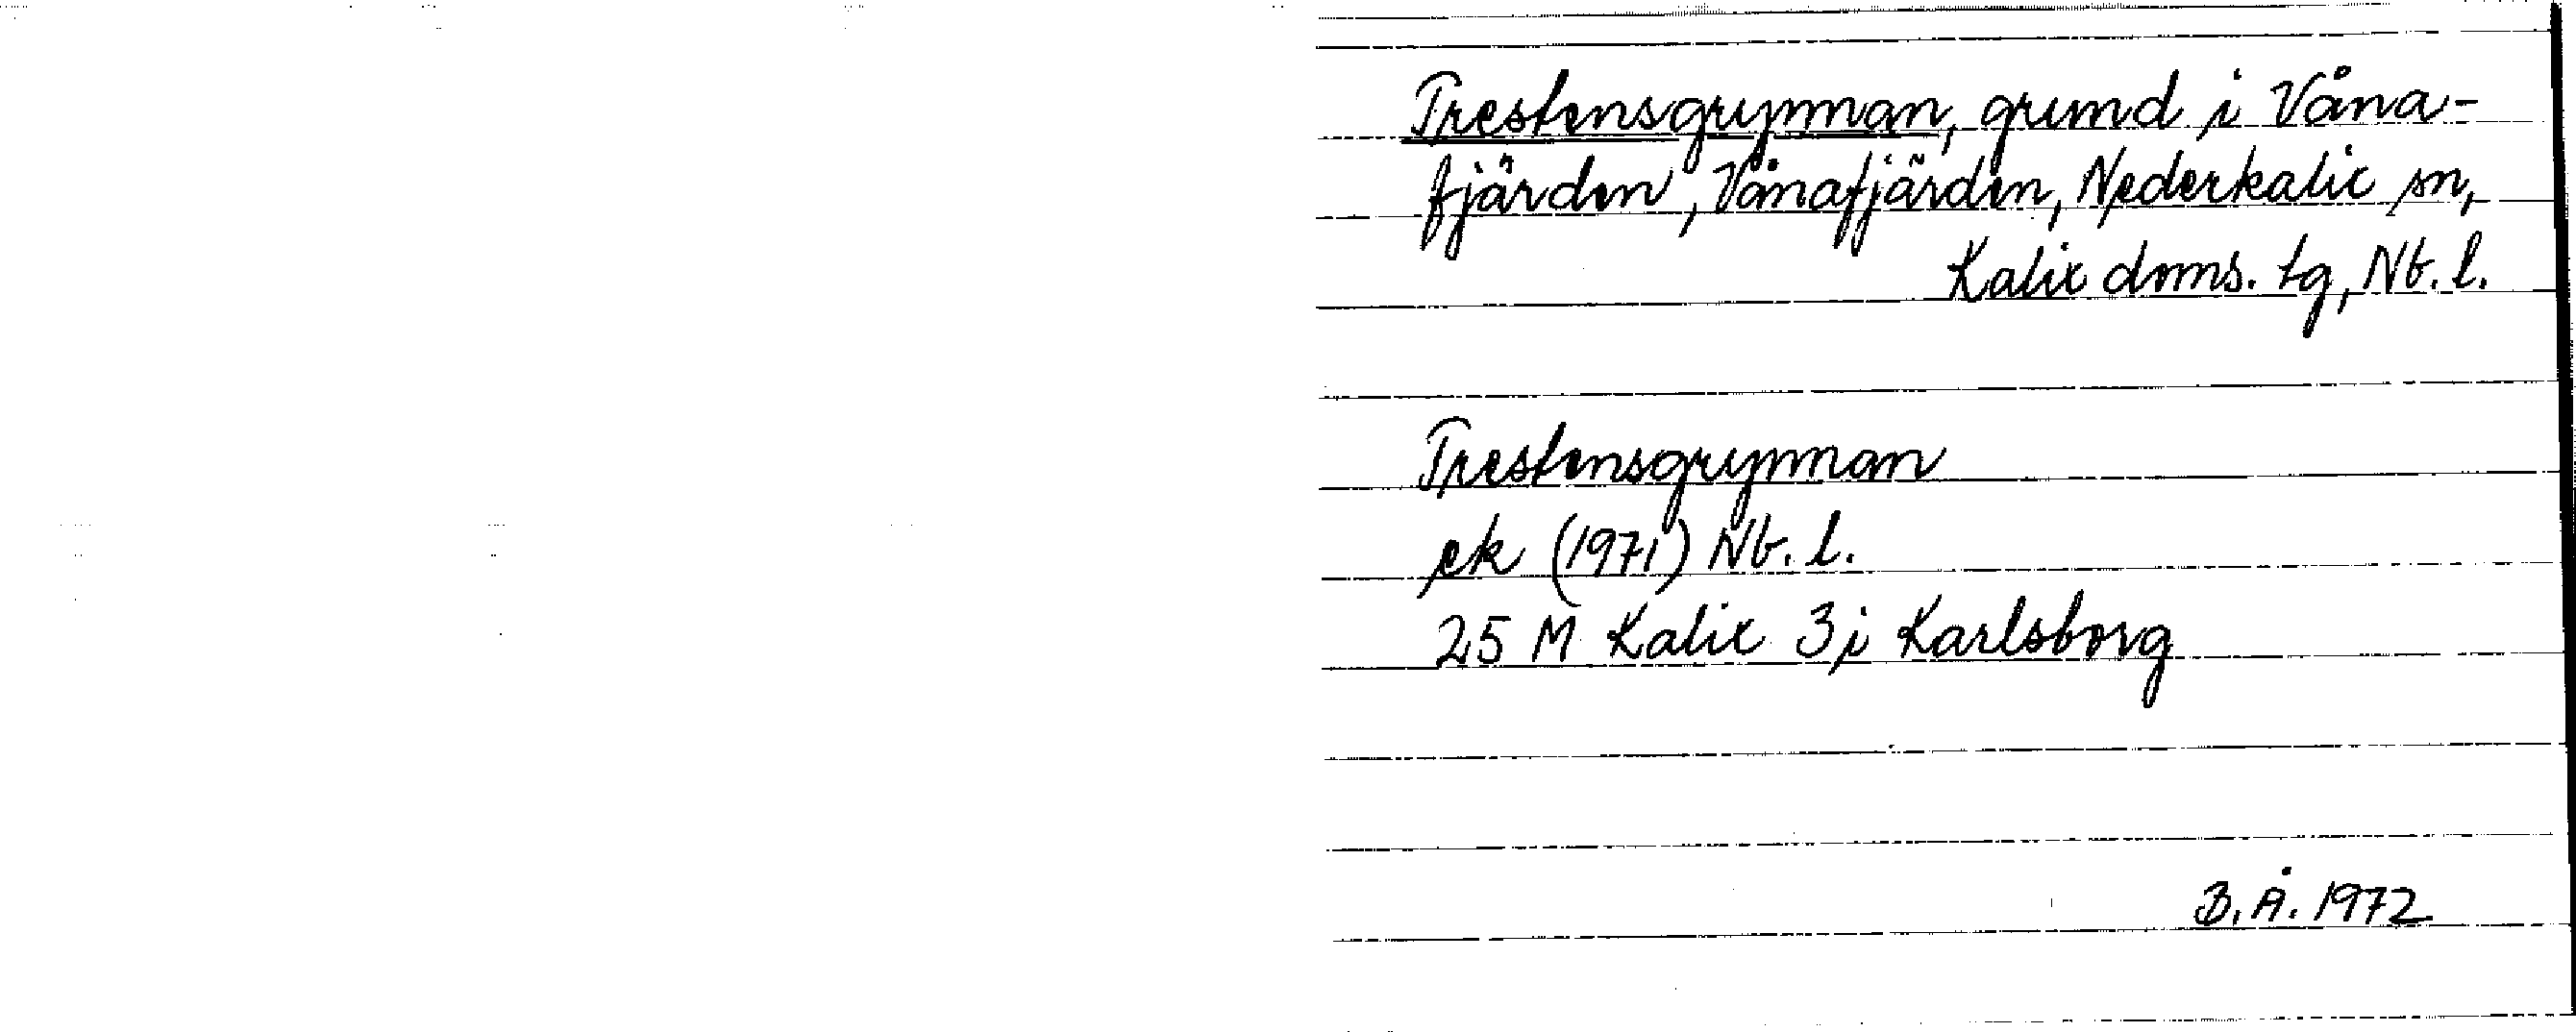 Trestensgrynnan, grund i Våna-
fjärden, Vånafjärden, Nederkalix sn,
Kalix doms. tg, Nb. l.
Trestensgrynnan
ek (1971) Nb. l.
25 M Kalix 3 i Karlsborg
B. Å. 1972